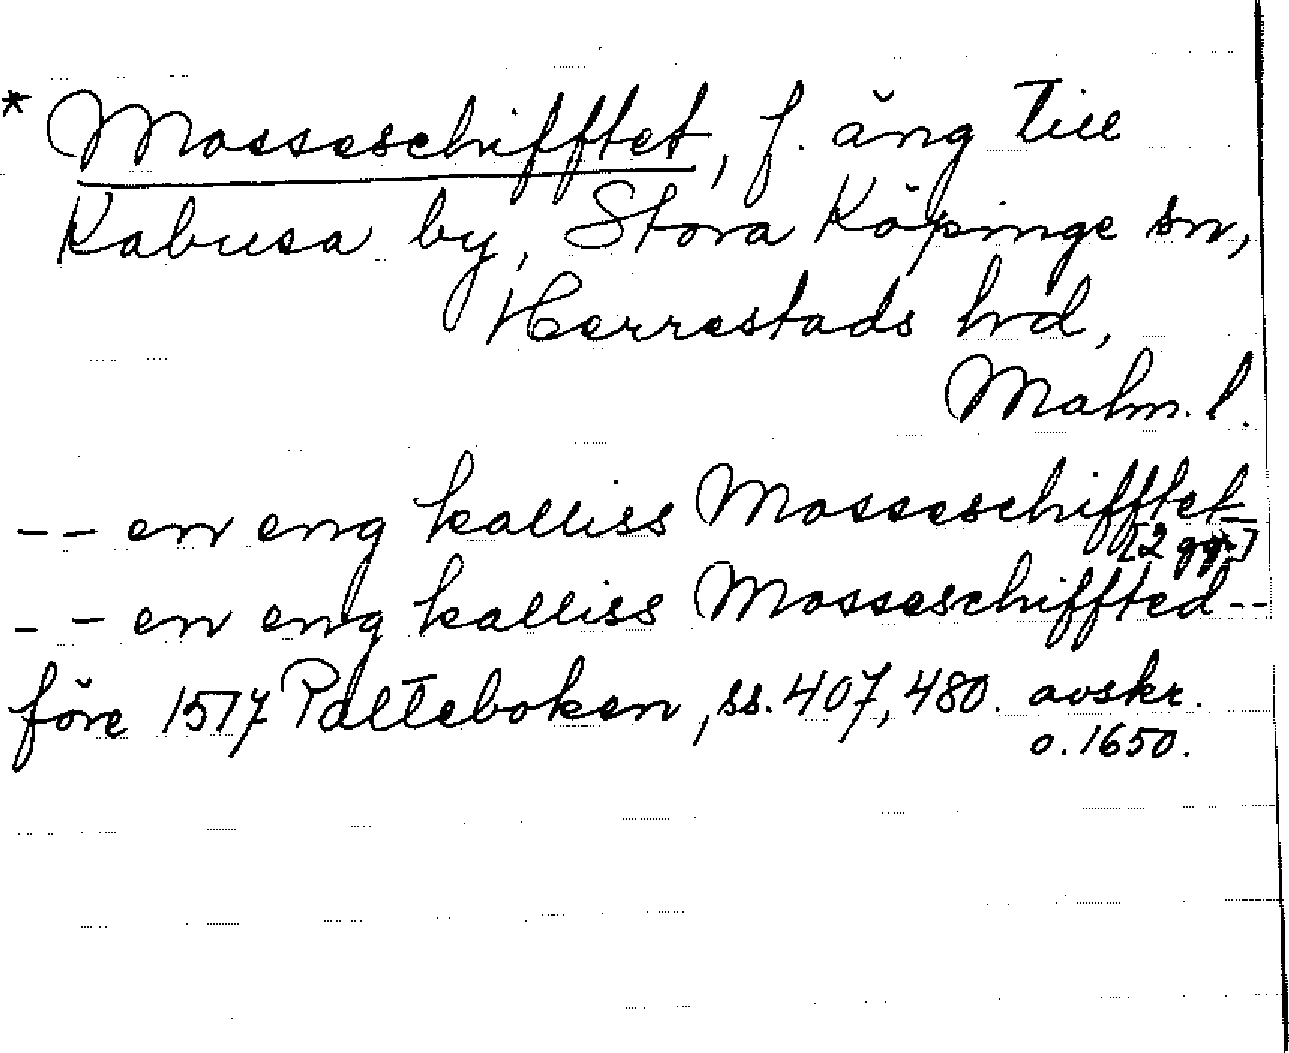 * Mosseschifftet, f. äng till
Kabusa by, Stora Köpinge sn,
Herrestads hrd,
Malm. l.
-- en eng kalliss Mosseschifftet
[2 ggr]
-- en eng kalliss Mosseschiffted --
före 1517 Palteboken, ss. 407, 480. avskr.
o. 1650.